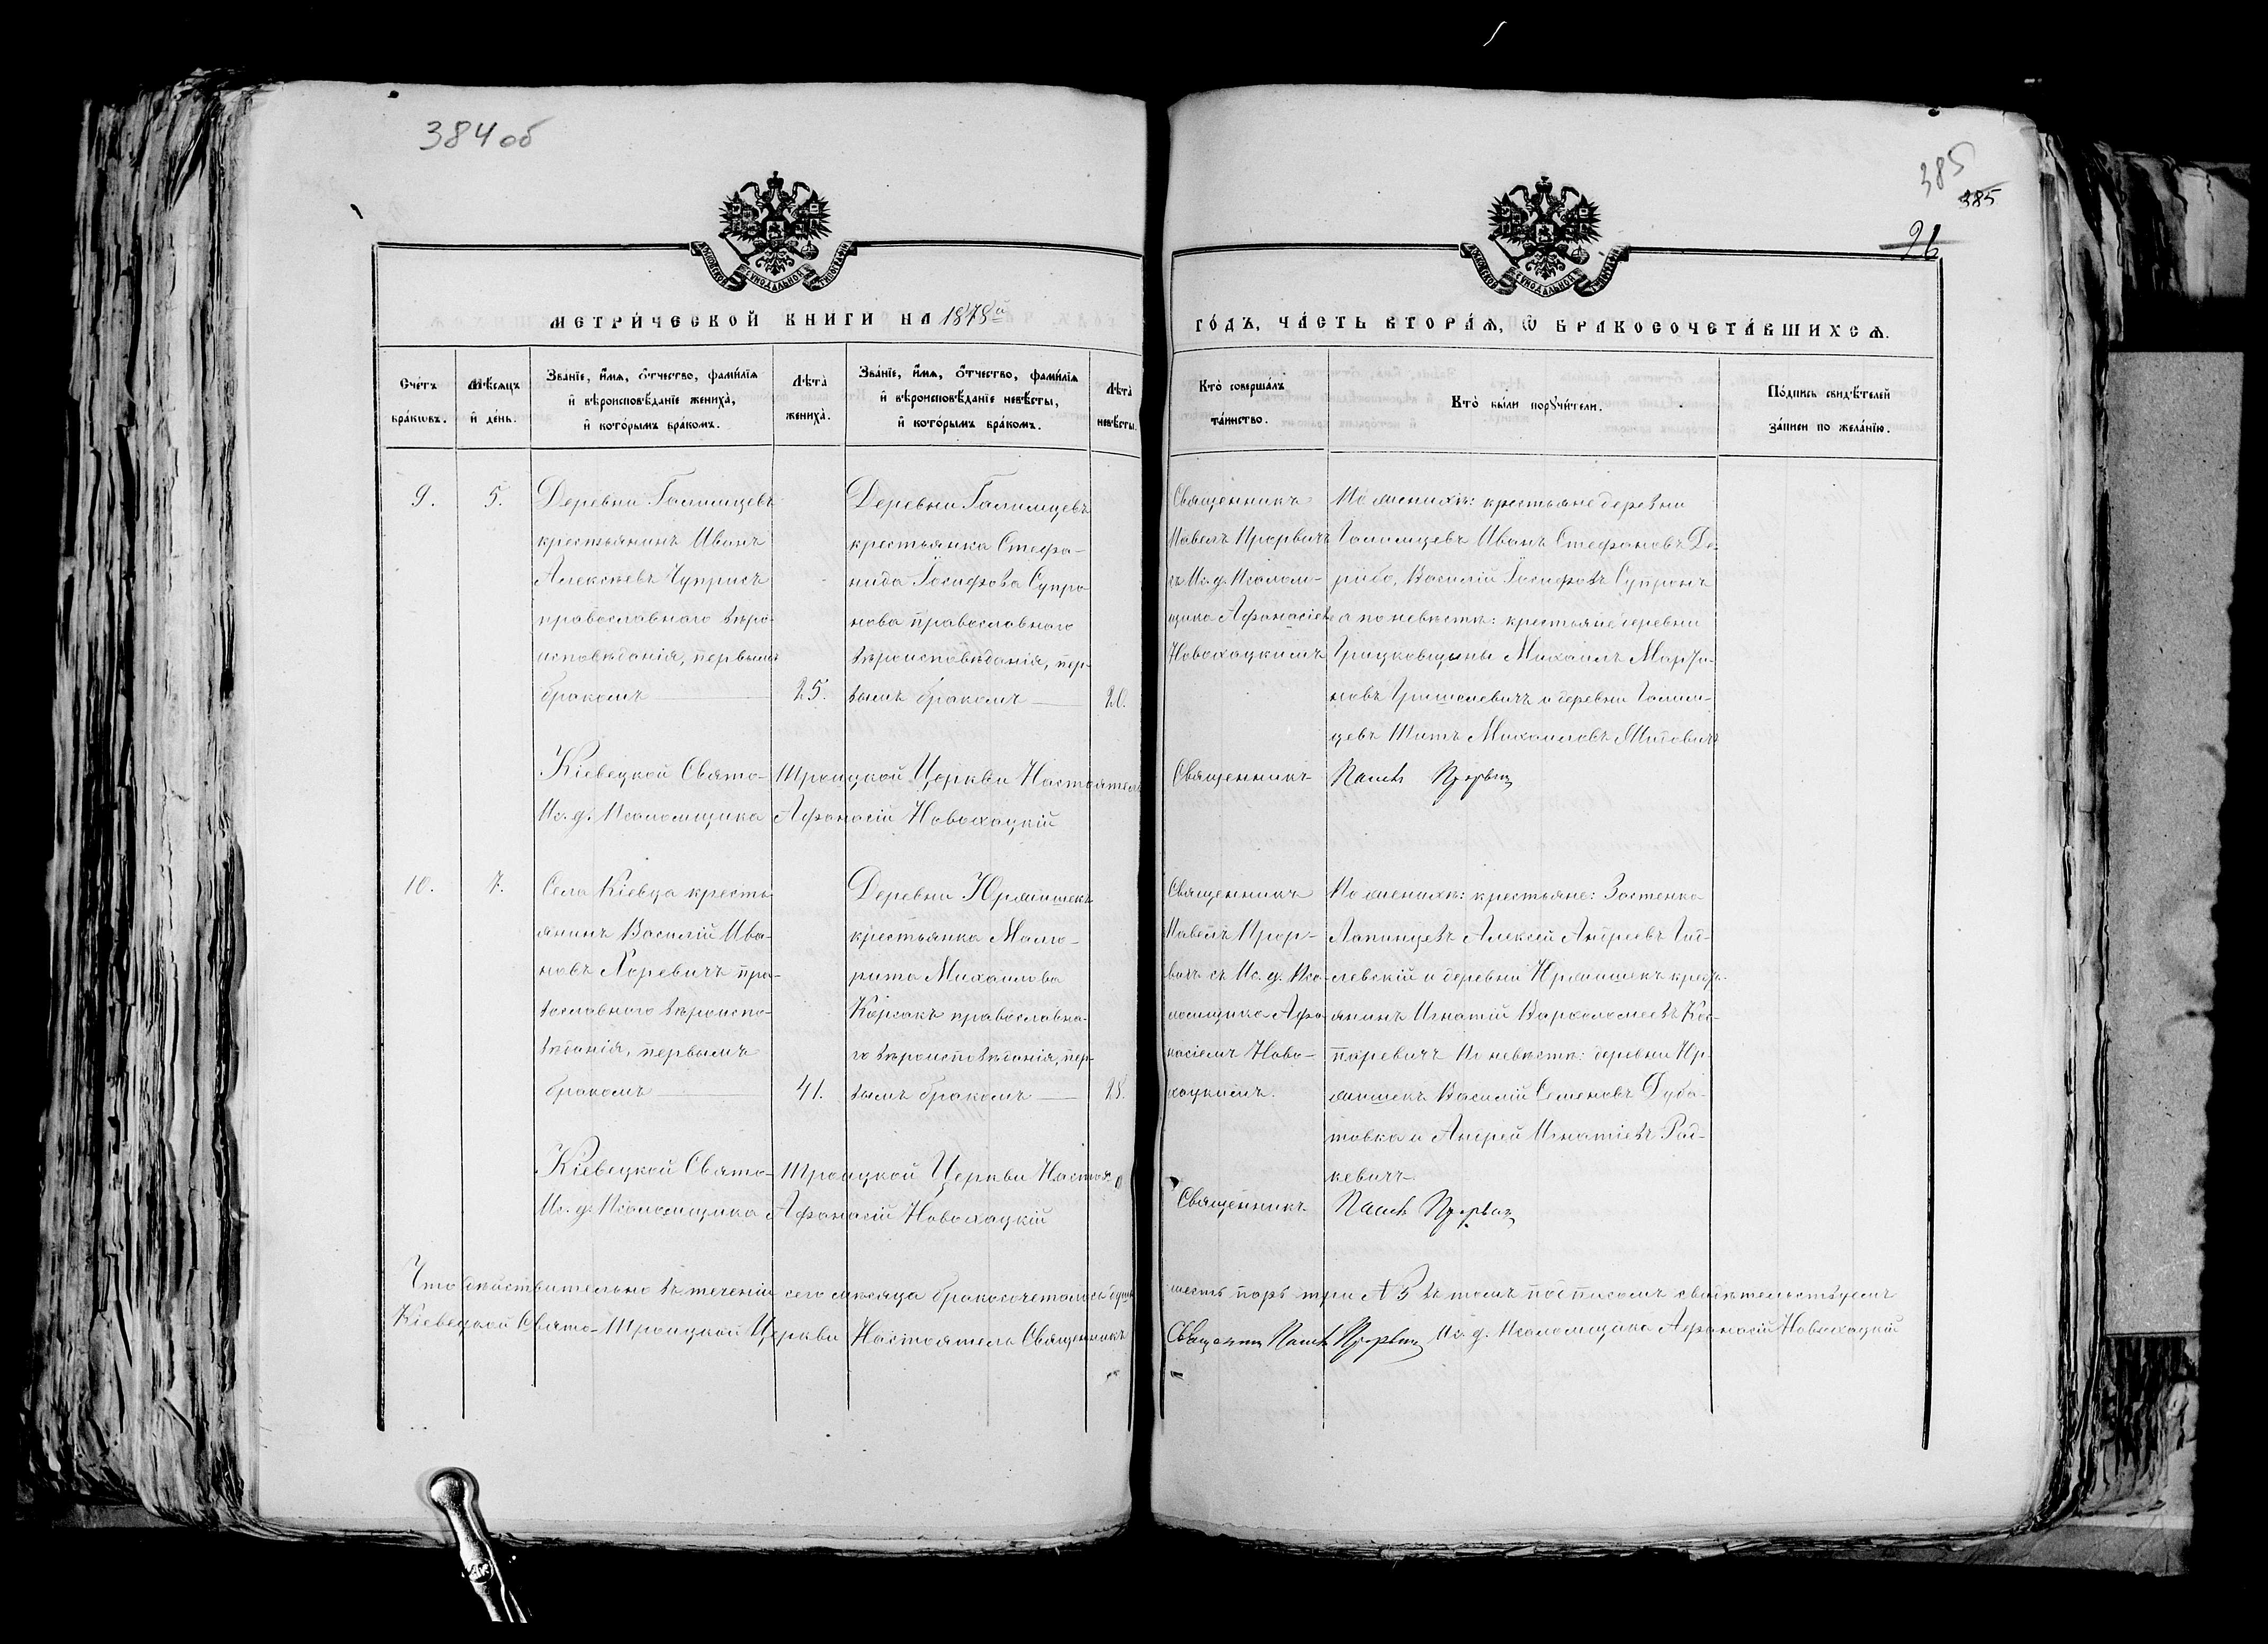 384 об
385
385
96
МЕТРИ́ЧЕСКОЙ КНИГИ НА 1878й
ГО́ДЪ, ЧА́СТЬ ВТОРА́Я, Ѿ БРАКОСОЧЕТА́ВШИХСЯ.
Сче́тъ бра́ковъ.
Мѣ́сяцъ и де́нь.
Зва́нїе, и́мя, о́тчество, фами́лїя
и вѣроисповѣ́данїе жениха̀,
и кото́рымъ бра́комъ.
Лѣта̀ жениха̀.
Зва́нїе, и́мя, о́тчество, фами́лїя
и вѣроисповѣ́данїе невѣ́сты,
и кото́рымъ бра́комъ.
Лѣта̀ невѣ́сты.
Кто̀ соверша́лъ
та́инство.
Кто̀ бы́ли поручи́тели.
По́дпись свидѣ́телей
за́писи по жела́нїю.
9.
5.
Деревни Галимцевъ
крестьянинъ Иванъ
Алексѣевъ Чуприсъ
православнаго вѣро-
исповѣданія, первымъ
бракомъ
25.
Деревни Галимцевъ
крестьянка Стефа-
нида Іосифова Супро-
нова православнаго
вѣроисповѣданія, пер-
вымъ бракомъ
20.
Священникъ
Павелъ Прорвичъ
съ Ис. д. Псалом-
щика Афанасіемъ
Новохацкимъ
По женихѣ: крестьяне деревни
Галимцевъ Иванъ Стефановъ Де-
рибо, Василій Іосифовъ Супронъ
а по невѣстѣ: крестьяне деревни
Грицковщины Михаилъ Марти-
новъ Гришкевичъ и деревни Галим-
цевъ Титъ Михаиловъ
Кіевецкой Свято-Троицкой Церкви Настоятель
Священникъ Павелъ Прорвичъ
Ис. д. Псаломщика Афанасій Новохацкій
10.
7.
Села Кіевца кресть-
янинъ Василій Ива-
новъ Хоревичъ пра-
вославнаго вѣроиспо-
вѣданія, первымъ
бракомъ
41.
Деревни Юрлишекъ
крестьянка Мало-
рита Михаилова
Корсакъ православна-
го вѣроисповѣданія, пер-
вымъ бракомъ
28.
Священникъ
Павелъ Прор-
вичъ съ Ис. д. Пса-
ломщика Афа-
насіемъ Ново-
хацкимъ.
По женихѣ: крестьяне: Застенка
Лапинцевъ Алексей Андреевъ Гад-
левскій и деревни Юрлишекъ кресть-
янинъ Игнатій Варфоломеевъ Кас-
паревичъ По невѣстѣ: деревни Юр-
лишекъ Василій Семеновъ Дуба-
товка и Андрей Игнатіевъ Рад-
кевичъ
Кіевецкой Свято-Троицкой Церкви Настоя.
Священникъ Павелъ Прорвичъ
Ис. д. Псаломщика Афанасій Новохацкій
Что дѣйствительно въ теченіи сего мѣсяца бракосочетались
шесть паръ три № 3 въ томъ подписомъ свидѣтельствуемъ
Кіевецкой Свято-Троицкой Церкви Настоятель Священникъ
Священникъ Павелъ Прорвичъ Ис. д. Псаломщика Афанасій Новохацкій